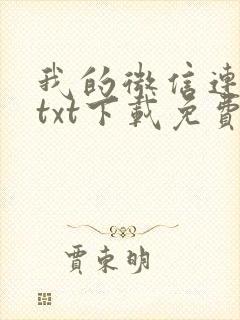 我的微信連
txt下載免費
賈東明